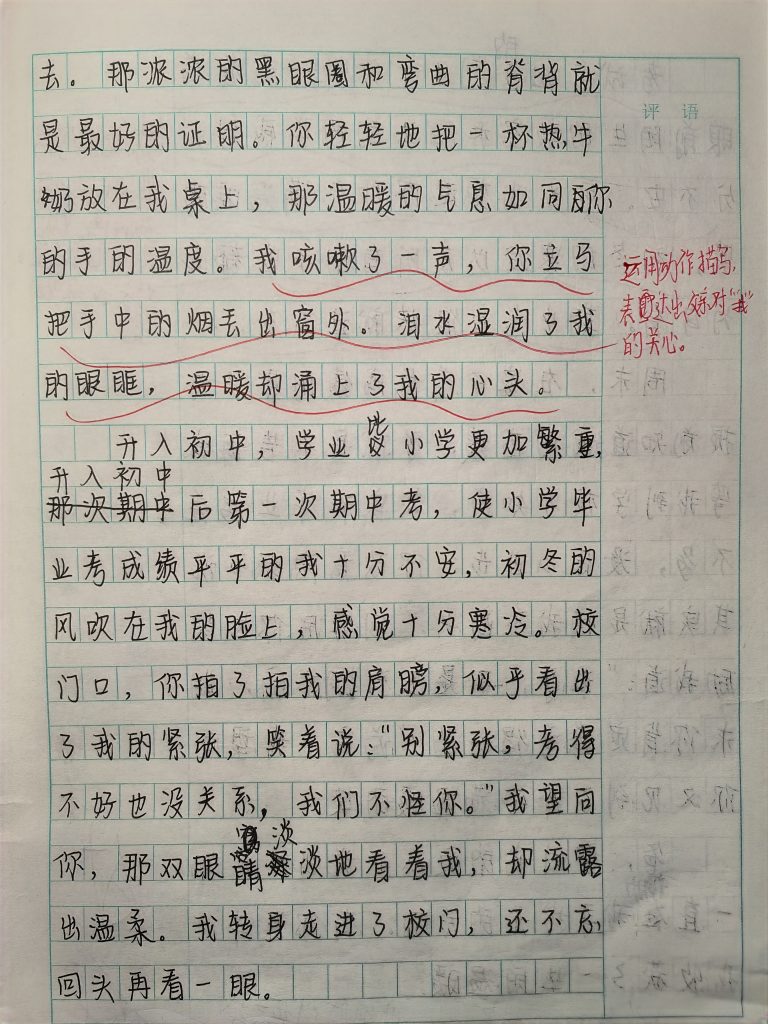 去。那浓浓的黑眼圈和弯曲的脊背就
评语
是最好的证明。你轻轻地把一杯热牛
奶放在我桌上，那温暖的气息如同你
的手的温度。我咳嗽了一声，你立马
运用动作描写，
把手中的烟丢出窗外。泪水湿润了我
表达出父亲对“我”
的关心。
的眼眶，温暖却涌上了我的心头。
升入初中，学业比小学更加繁重，
升入初中
那次期中后第一次期中考，使小学毕
业考成绩平平的我十分不安，初冬的
风吹在我的脸上，感觉十分寒冷。校
门口，你拍了拍我的肩膀，似乎看出
了我的紧张，笑着说：“别紧张，考得
不好也没关系，我们不怪你。”我望向
淡
你，那双眼睛淡地看着我，却流露
出温柔。我转身走进了校门，还不忘
回头再看一眼。